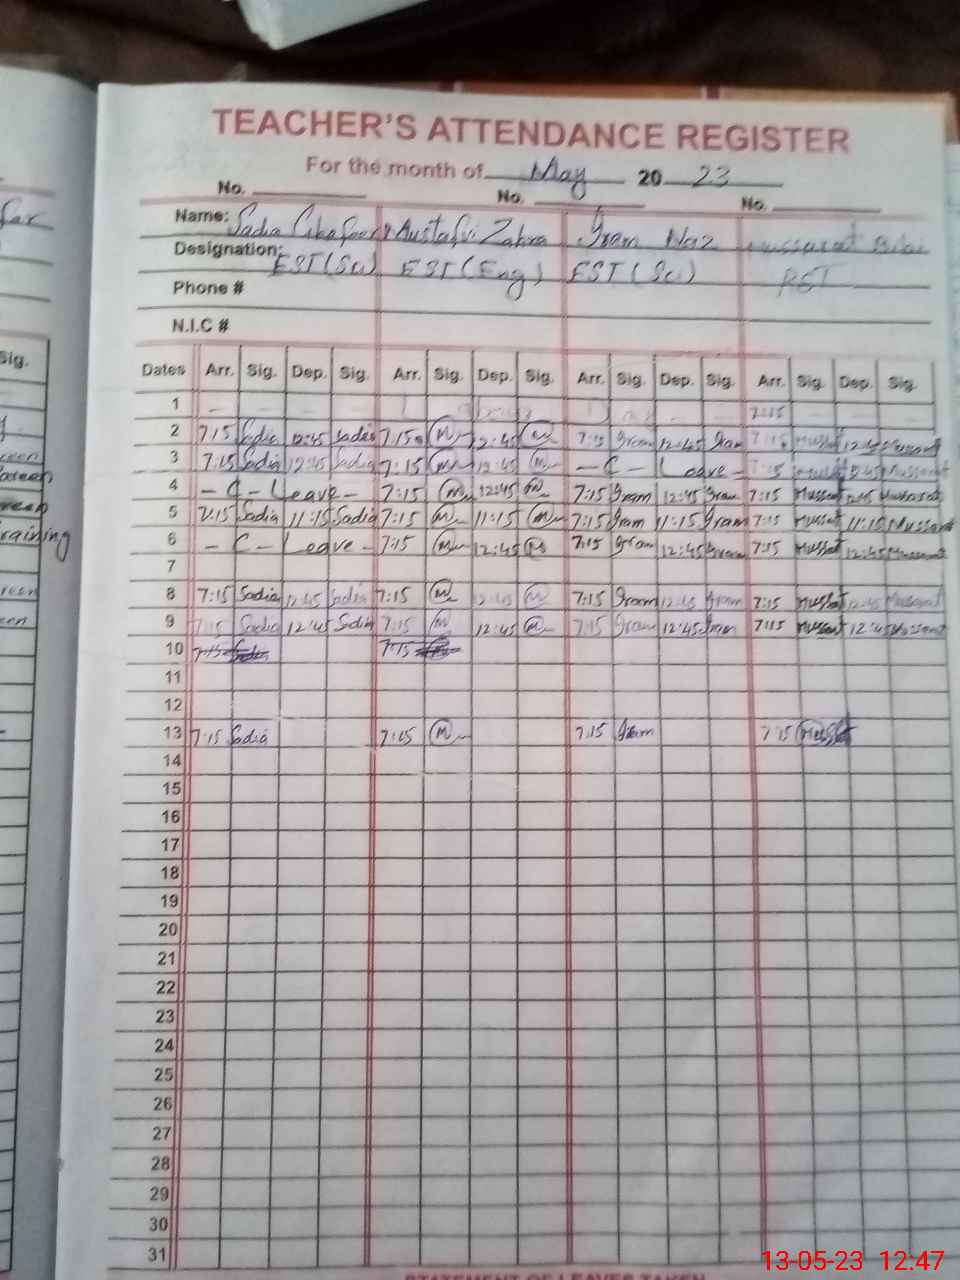 TEACHER'S ATTENDANCE REGISTER
For the month of May 20 23
No. No. No.
Name: Sadia Mustafvi Zahra Iram Naz Mussarat
Designation: EST (Sci) EST (Eng) EST (Sci)
Phone #
N.I.C #
Sig.
Dates Arr. Sig. Dep. Sig. Arr. Sig. Dep. Sig. Arr. Sig. Dep. Sig. Arr. Sig. Dep. Sig.
1 7:15
2 7:15 Sadia 12:45 Sadia 7:15 M 12:45 M 7:15 Iram 12:45 Iram 7:15 Mussarat
3 7:15 Sadia 12:45 Sadia 7:15 M 12:45 M - C - Leave - 7:15 Mussarat
4 - C - Leave - 7:15 M 12:45 M 7:15 Iram 12:45 Iram 7:15 Mussarat
5 7:15 Sadia 11:15 Sadia 7:15 M 11:15 M 7:15 Iram 11:15 Iram 7:15 Mussarat 11:15 Mussarat
6 - C - Leave - 7:15 M 12:45 M 7:15 Iram 12:45 Iram 7:15 Mussarat 12:45 Mussarat
7
8 7:15 Sadia 12:45 Sadia 7:15 M 12:45 M 7:15 Iram 12:45 Iram 7:15 Mussarat 12:45 Mussarat
9 7:15 Sadia 12:45 Sadia 7:15 M 12:45 M 7:15 Iram 12:45 Iram 7:15 Mussarat 12:45 Mussarat
10 7:15 Sadia 7:15
11
12
13 7:15 Sadia 7:15 M 7:15 Iram 7:15
14
15
16
17
18
19
20
21
22
23
24
25
26
27
28
29
30
31
STATEMENT OF LEAVES TAKEN
13-05-23 12:47